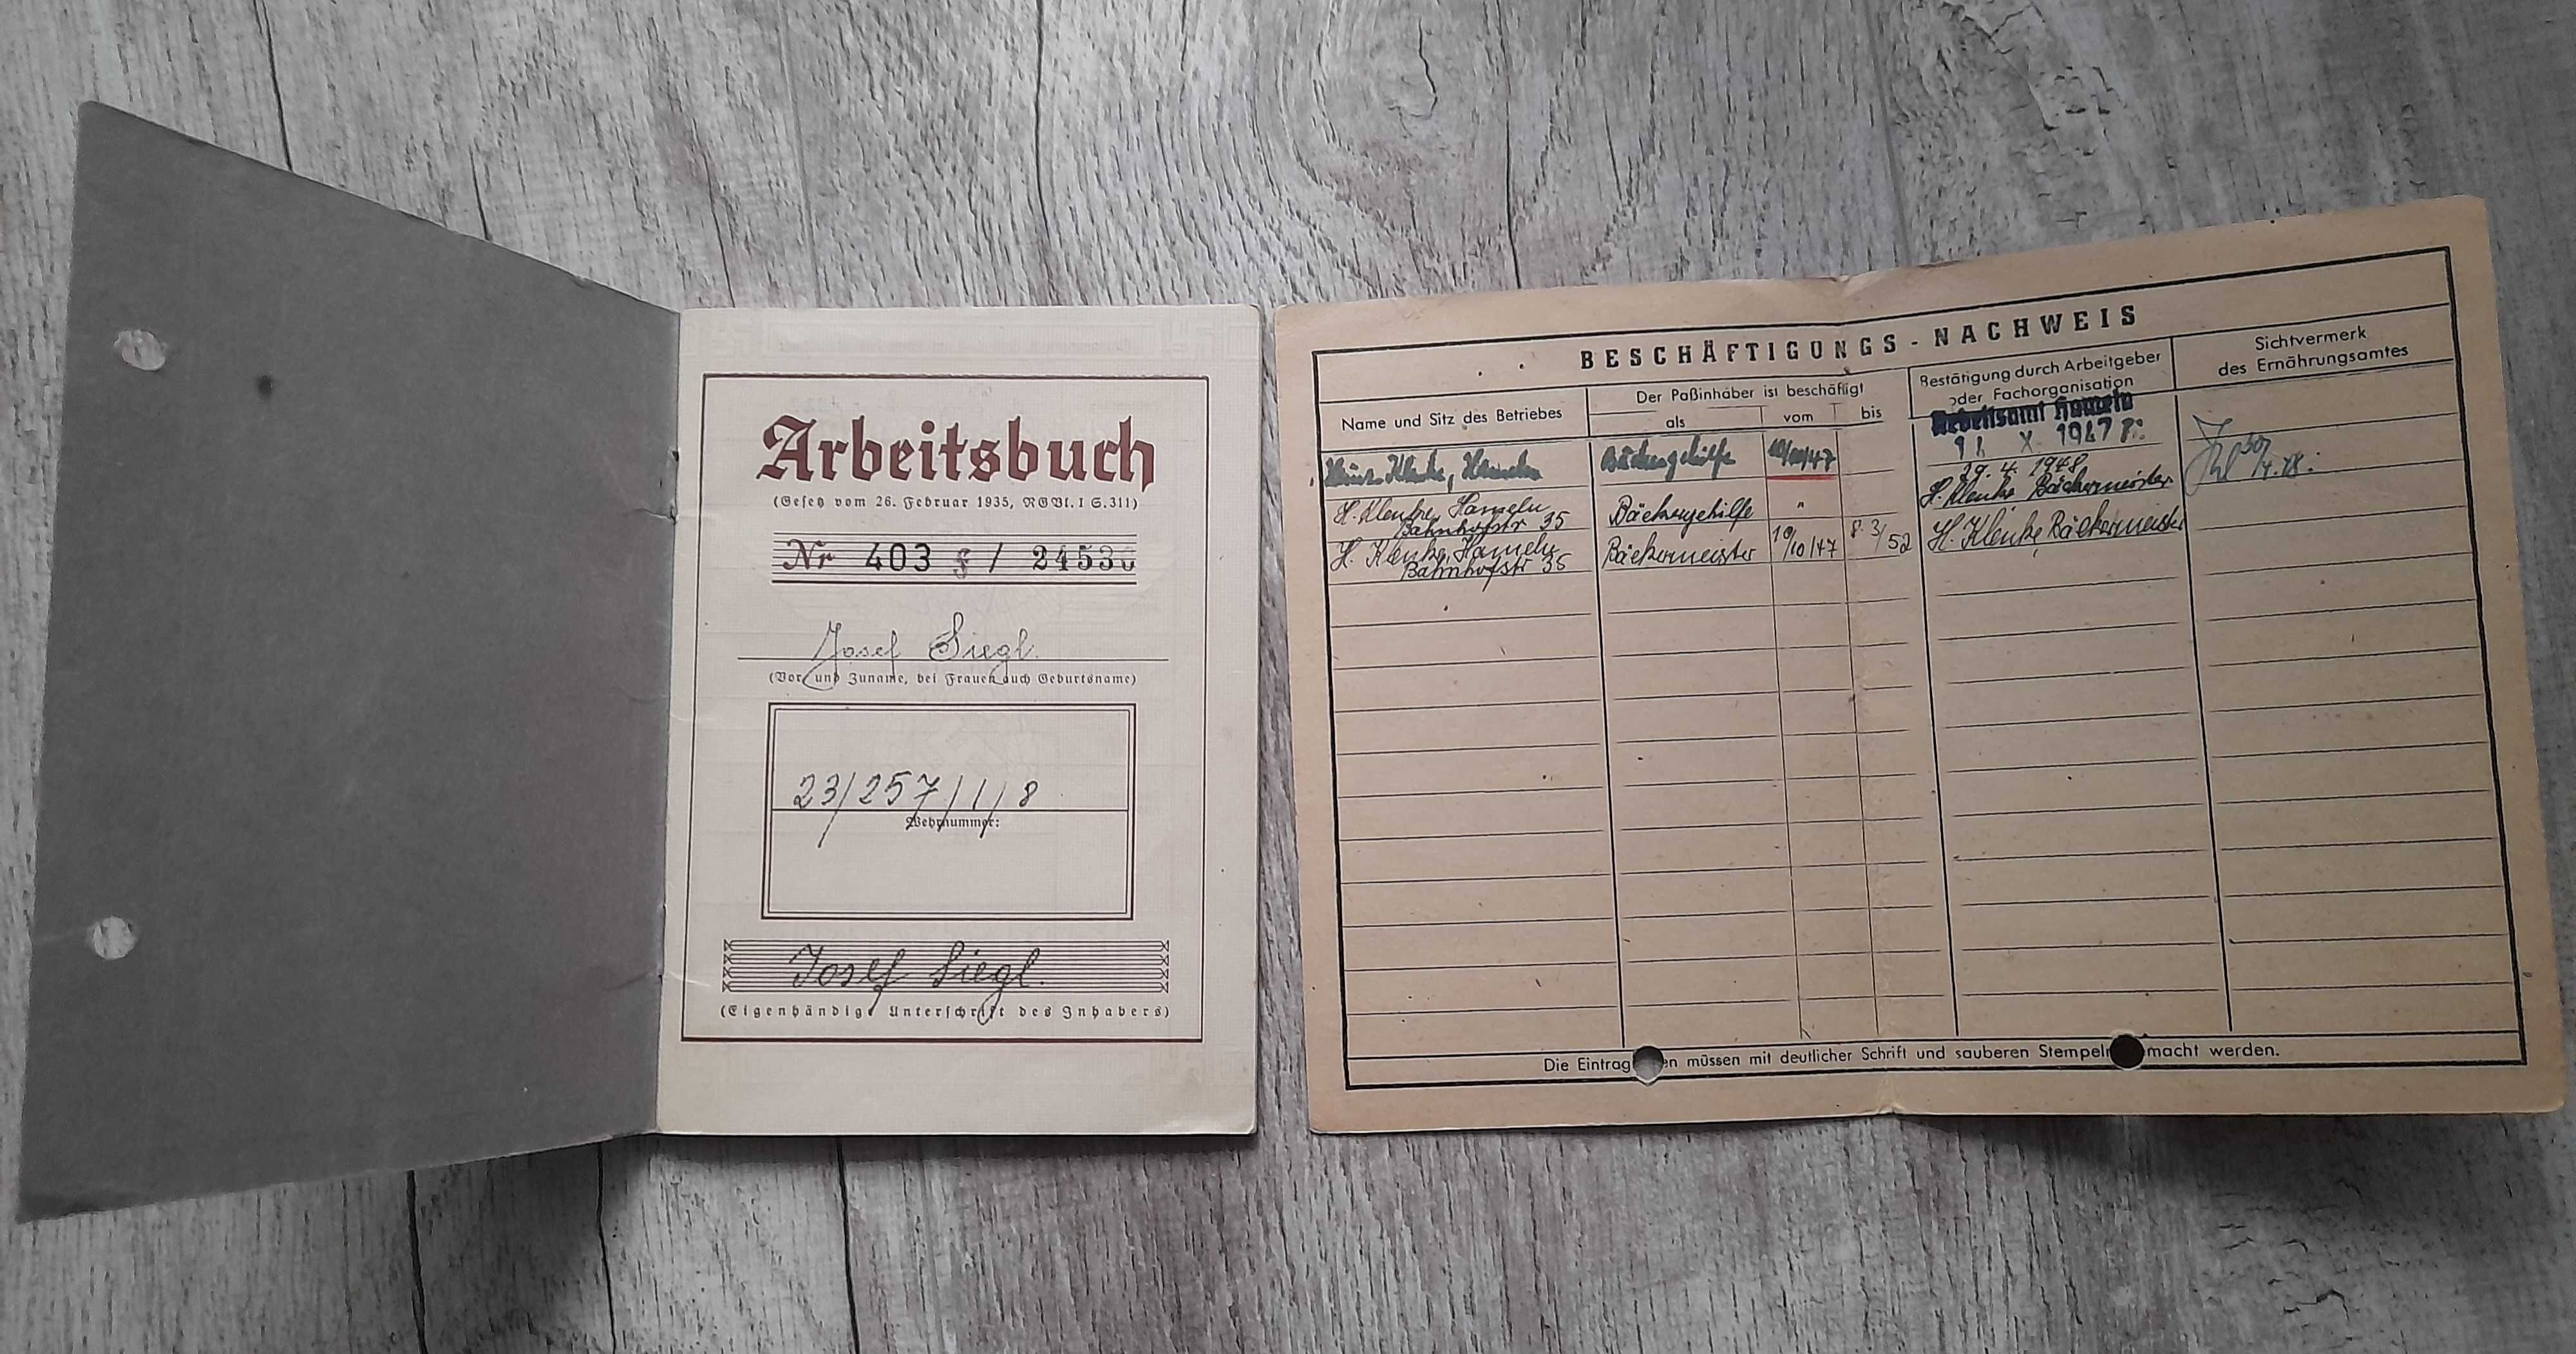 Arbeitsbuch
(Gesetz vom 26. Februar 1935, RGBl. I S. 311)
Nr 403 / 2453
Josef Siegl.
(Vor- und Zuname, bei Frauen auch Geburtsname)
23/257/1/8
Wehrnummer:
Josef Siegl.
(Eigenhändige Unterschrift des Inhabers)
BESCHÄFTIGUNGS-NACHWEIS
Name und Sitz des Betriebes
Der Paßinhaber ist beschäftigt
als vom bis
Bestätigung durch Arbeitgeber
oder Fachorganisation
Sichtvermerk
des Ernährungsamtes
Klenke, Hameln Bäckergehilfe 10/10/47 Arbeitsamt Hameln
X 1947
29. 4. 1948
H. Klenke, Hameln Bäckergehilfe " H. Klenke Bäckermeister
Bahnhofstr 35
H. Klenke, Hameln Bäckermeister 10/10/47 8. 3/52 H. Klenke, Bäckermeister
Bahnhofstr 35
Die Eintrag en müssen mit deutlicher Schrift und sauberen Stempeln macht werden.